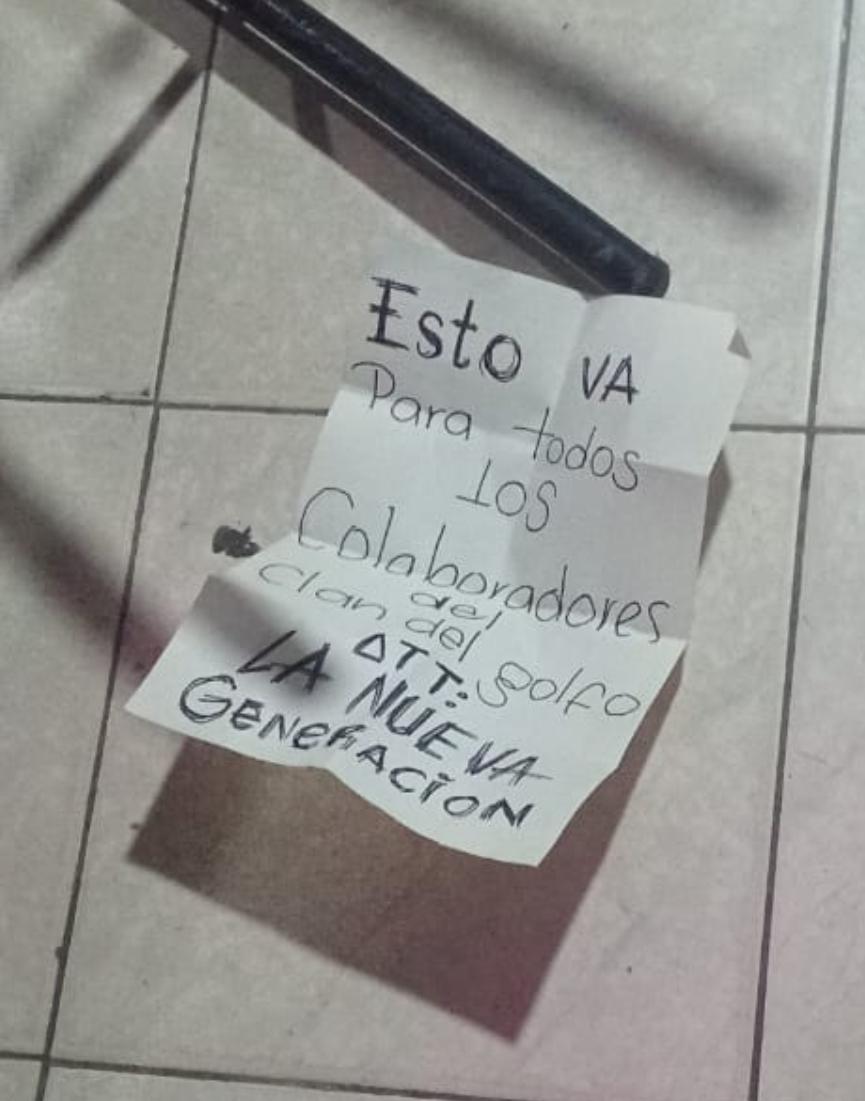 Esto VA
Para todos
los
Colaboradores
del
Clan del golfo
ATT:
LA NUEVA
GENERACION